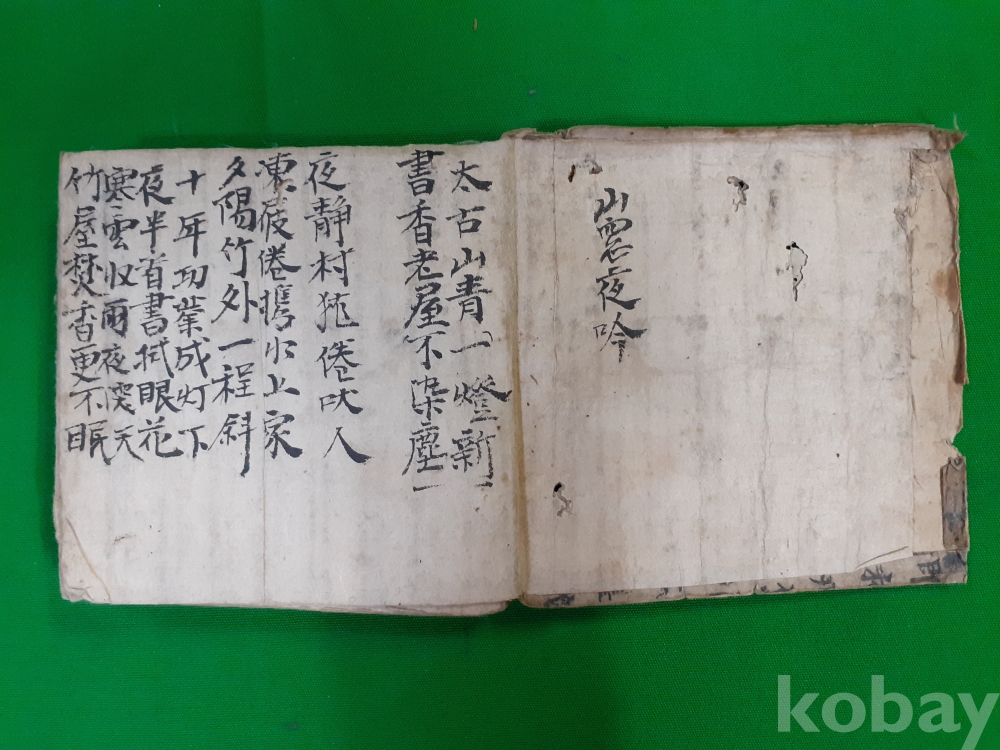 山雲夜吟
太古山青一燈新
書香老屋不染塵
夜靜村厖倦吠人
凍疲倦携水上家
夕陽竹外一程斜
十年功業成灯下
夜半看書拭眼花
寒雲收雨夜深天
竹屋焚香更不眠
kobay